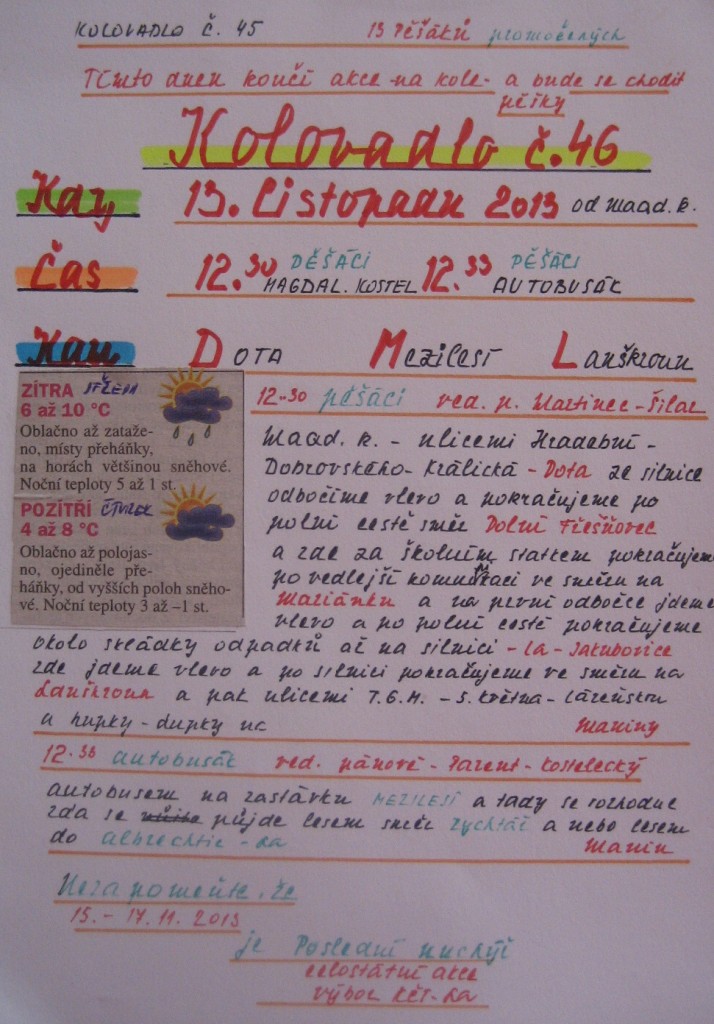 KOLOVADLO Č. 45 13 PĚŠÁKŮ promočených
Tímto dnem končí akce na kole - a bude se chodit
pěšky
Kolovadlo č.46
Kdy 13. Listopadu 2013 od Magd. k.
Čas 12.30 PĚŠÁCI MAGDAL. KOSTEL 12.33 PĚŠÁCI AUTOBUSÁK
Kam DOTA MEZILESÍ LANŠKROUN
ZÍTRA STŘEDA
6 až 10 °C
Oblačno až zataže-
no, místy přeháňky,
na horách většinou sněhové.
Noční teploty 5 až 1 st.
POZÍTŘÍ ČTVRTEK
4 až 8 °C
Oblačno až polojas-
no, ojediněle pře-
háňky, od vyšších poloh sněho-
vé. Noční teploty 3 až –1 st.
12.30 pěšáci ved. p. Martinec - Šilar
Magd. k. - ulicemi Hradební -
Dobrovského - Králická - Dota ze silnice
odbočíme vlevo a pokračujeme po
polní cestě směr Dolní Třešňovec
a zde za školním statkem pokračujeme
po vedlejší komunikaci ve směru na
Mariánku a na první odbočce jdeme
vlevo a po polní cestě pokračujeme
okolo skládky odpadků až na silnici - La - Jakubovice
zde jdeme vlevo a po silnici pokračujeme ve směru na
Lanškroun a pak ulicemi T.G.M. - 5. května - Lázeňskou
a hupky - dupky na Maniny
12.33 autobusák ved. pánové - Parent - Kostelecký
autobusem na zastávku MEZILESÍ a tady se rozhodne
zda se půjde lesem směr Rychtář a nebo lesem
do Albrechtic - La Manin
Nezapomeňte, že
15. - 17. 11. 2013
je Poslední puchýř
celostátní akce
výbor KČT - La